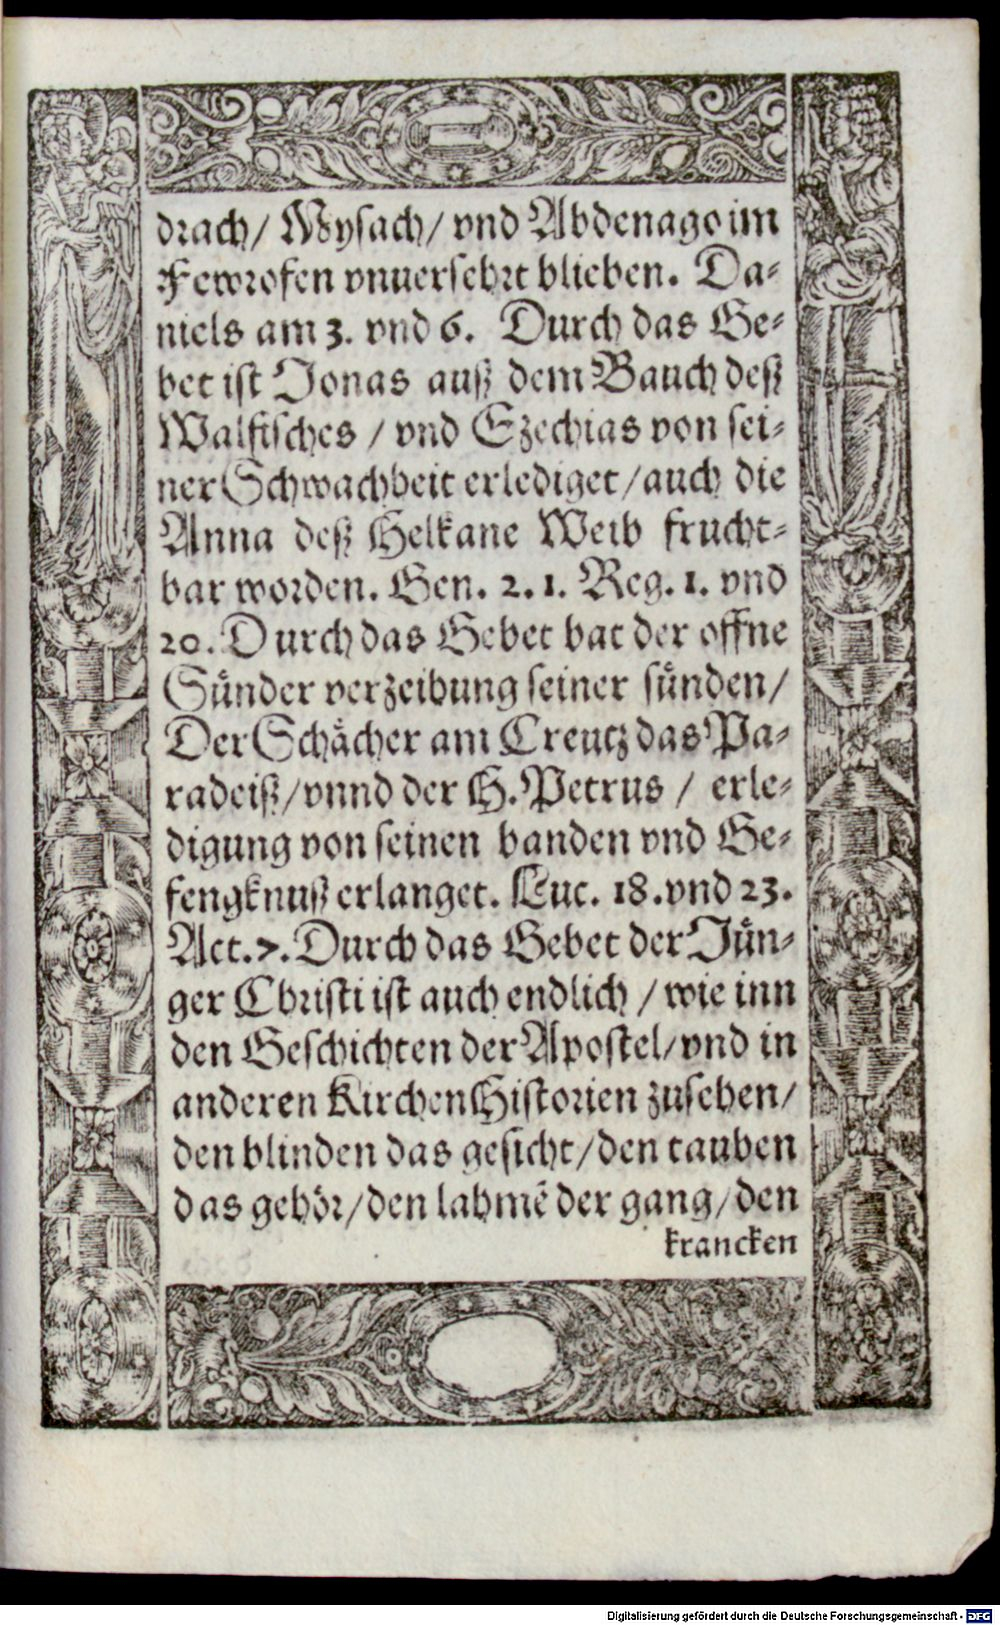 drach/ Mysach/ vnd Abdenago im
Fewrofen vnuersehrt blieben. Da-
niels am 3. vnd 6. Durch das Ge-
bet ist Jonas auß dem Bauch deß
Walfisches / vnd Ezechias von sei-
ner Schwachheit erlediget/auch die
Anna deß Helkane Weib frucht-
bar worden. Gen. 2. 1. Reg. 1. vnd
20. Durch das Gebet hat der offne
Sünder verzeihung seiner sünden/
Der Schächer am Creutz das Pa-
radeiß/vnnd der H. Petrus / erle-
digung von seinen banden vnd Ge-
fengknuß erlanget. Luc. 18. vnd 23.
Act. 7. Durch das Gebet der Jün-
ger Christi ist auch endlich / wie inn
den Geschichten der Apostel/vnd in
anderen KirchenHistorien zusehen/
den blinden das gesicht/den tauben
das gehör/den lahmē der gang/den
krancken
Digitalisierung gefördert durch die Deutsche Forschungsgemeinschaft - DFG